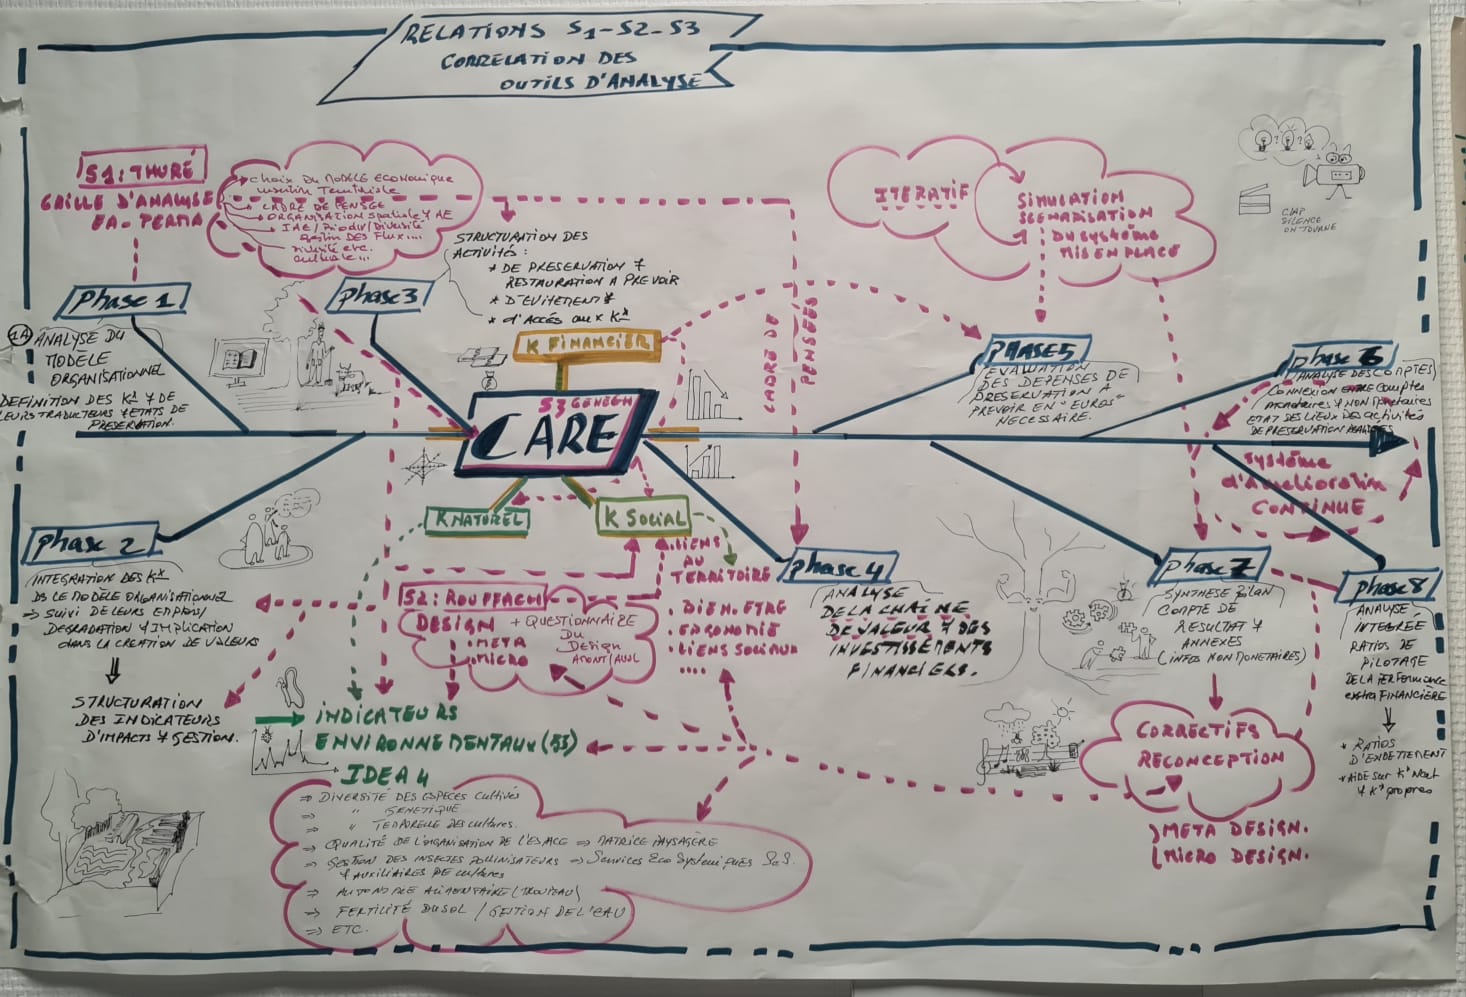 RELATIONS S1-S2-S3
CORRELATION DES
OUTILS D'ANALYSE
S1: THURÉ
GRILLE D'ANALYSE
EA-PERMA
choix du modèle économique
CADRE DE PENSÉE
ORGANISATION spatiale & AE
IAE / Biodiv / Diversité
gestion DES Flux...
Diversité etc.
culturale...
Phase 1
1A ANALYSE DU
MODELE
ORGANISATIONNEL
DEFINITION DES Kx & DE
LEURS TRADUCTEURS & ETATS DE
PRESERVATION.
Phase 3
STRUCTURATION DES
ACTIVITÉS :
* DE PRESERVATION &
RESTAURATION A PREVOIR
* D'EVITEMENT &
* d'Accès aux Kx
K FINANCIER
S3 GENECH
CARE
K NATUREL
K SOCIAL
CADRE DE
PENSÉES
ITERATIF
SIMULATION
SCENARISATION
DU SYSTÈME
MIS EN PLACE
CLAP
SILENCE
ON TOURNE
PHASE 5
EVALUATION
DES DEPENSES DE
PRESERVATION A
PREVOIR EN "EUROS"
NECESSAIRE.
phase 6
ANALYSE DES COMPTES
Connexion entre comptes
monétaires & NON Monétaires
ETAT DES LIEUX DES activités
DE PRESERVATION
Système
d'Amélioration
CONTINUE
phase 2
INTEGRATION DES Kx
DS LE MODÈLE ORGANISATIONNEL
→ Suivi DE LEURS EMPLOIS/
DEGRADATION & IMPLICATION
dans LA CREATION DE VALEURS
⇓
STRUCTURATION
DES INDICATEURS
D'IMPACTS & GESTION.
S2: ROUFFACH
DESIGN
. META
. MICRO
+ QUESTIONNAIRE
DU
Design
. LIENS
AU
TERRITOIRE
. BIEN.ETRE
. ERGONOMIE
. LIENS SOCIAUX
....
phase 4
ANALYSE
DE LA CHAÎNE
DE VALEUR & DES
INVESTISSEMENTS
FINANCIERS.
Phase 7
SYNTHESE BILAN
COMPTE DE
RESULTAT &
ANNEXES
(INFOS NON MONETAIRES)
phase 8
ANALYSE
INTEGRÉE
RATIOS DE
PILOTAGE
DE LA PERFORMANCE
extra FINANCIÈRE
⇓
* RATIOS
D'ENDETTEMENT
CORRECTIFS
RECONCEPTION
META DESIGN.
MICRO DESIGN.
INDICATEURS
ENVIRONNEMENTAUX (S3)
IDEA 4
⇒ DIVERSITÉ DES ESPECES cultivés
⇒ " GENETIQUE
⇒ " TEMPORELLE DES cultures.
⇒ QUALITÉ DE L'ORGANISATION DE L'ESPACE ⇒ MATRICE PAYSAGÈRE
⇒ GESTION DES INSECTES POLLINISATEURS ⇒ Services Eco Systemiques
& AUXILIAIRES DE cultures
⇒ AUTONOMIE ALIMENTAIRE (TROUPEAU)
⇒ FERTILITÉ DU SOL / GESTION DE L'EAU
⇒ ETC.